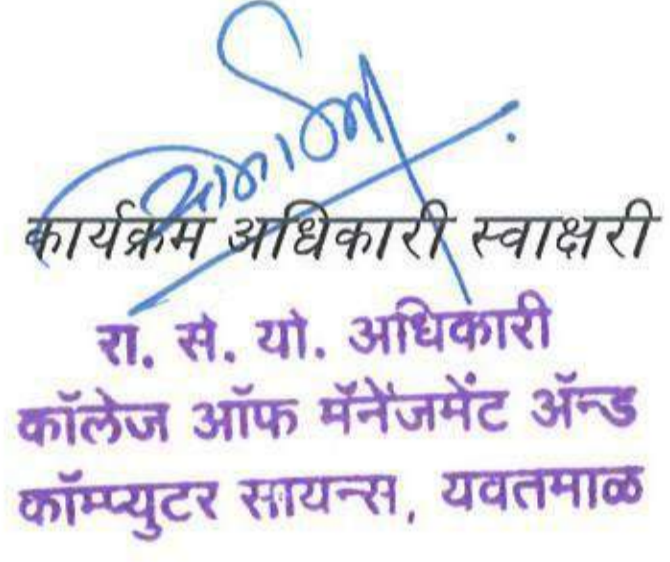 कार्यक्रम अधिकारी स्वाक्षरी
रा. से. यो. अधिकारी
कॉलेज ऑफ मॅनेजमेंट ॲन्ड
कॉम्प्युटर सायन्स, यवतमाळ